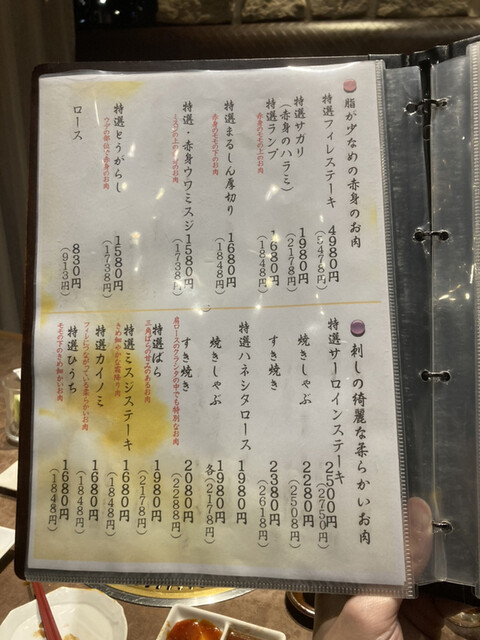 脂が少なめの赤身のお肉
特選フィレステーキ 4980円
(5478円)
特選サガリ
(赤身のハラミ) 1980円
(2178円)
特選ランプ 1680円
赤身のモモの上のお肉 (1848円)
特選まるしん厚切り 1680円
赤身のモモの下のお肉 (1848円)
特選・赤身ウワミスジ 1580円
(1738円)
特選とうがらし 1580円
ウデの部位で赤身のお肉 (1738円)
ロース 830円
(913円)
刺しの綺麗な柔らかいお肉
特選サーロインステーキ 2500円
(2750円)
焼きしゃぶ 2280円
(2508円)
すき焼き 2380円
(2618円)
特選ハネシタロース 1980円
焼きしゃぶ 各1980円
(2178円)
すき焼き 2080円
肩ロースのクラシタの中でも特別なお肉 (2288円)
特選ばら 1980円
三角ばらの甘みのあるお肉 (2178円)
特選ミスジステーキ 1680円
きめ細やかな霜降り肉 (1848円)
特選カイノミ 1680円
フィレにつながっている柔らかいお肉 (1848円)
特選ひうち 1680円
モモの下のきめ細かいお肉 (1848円)